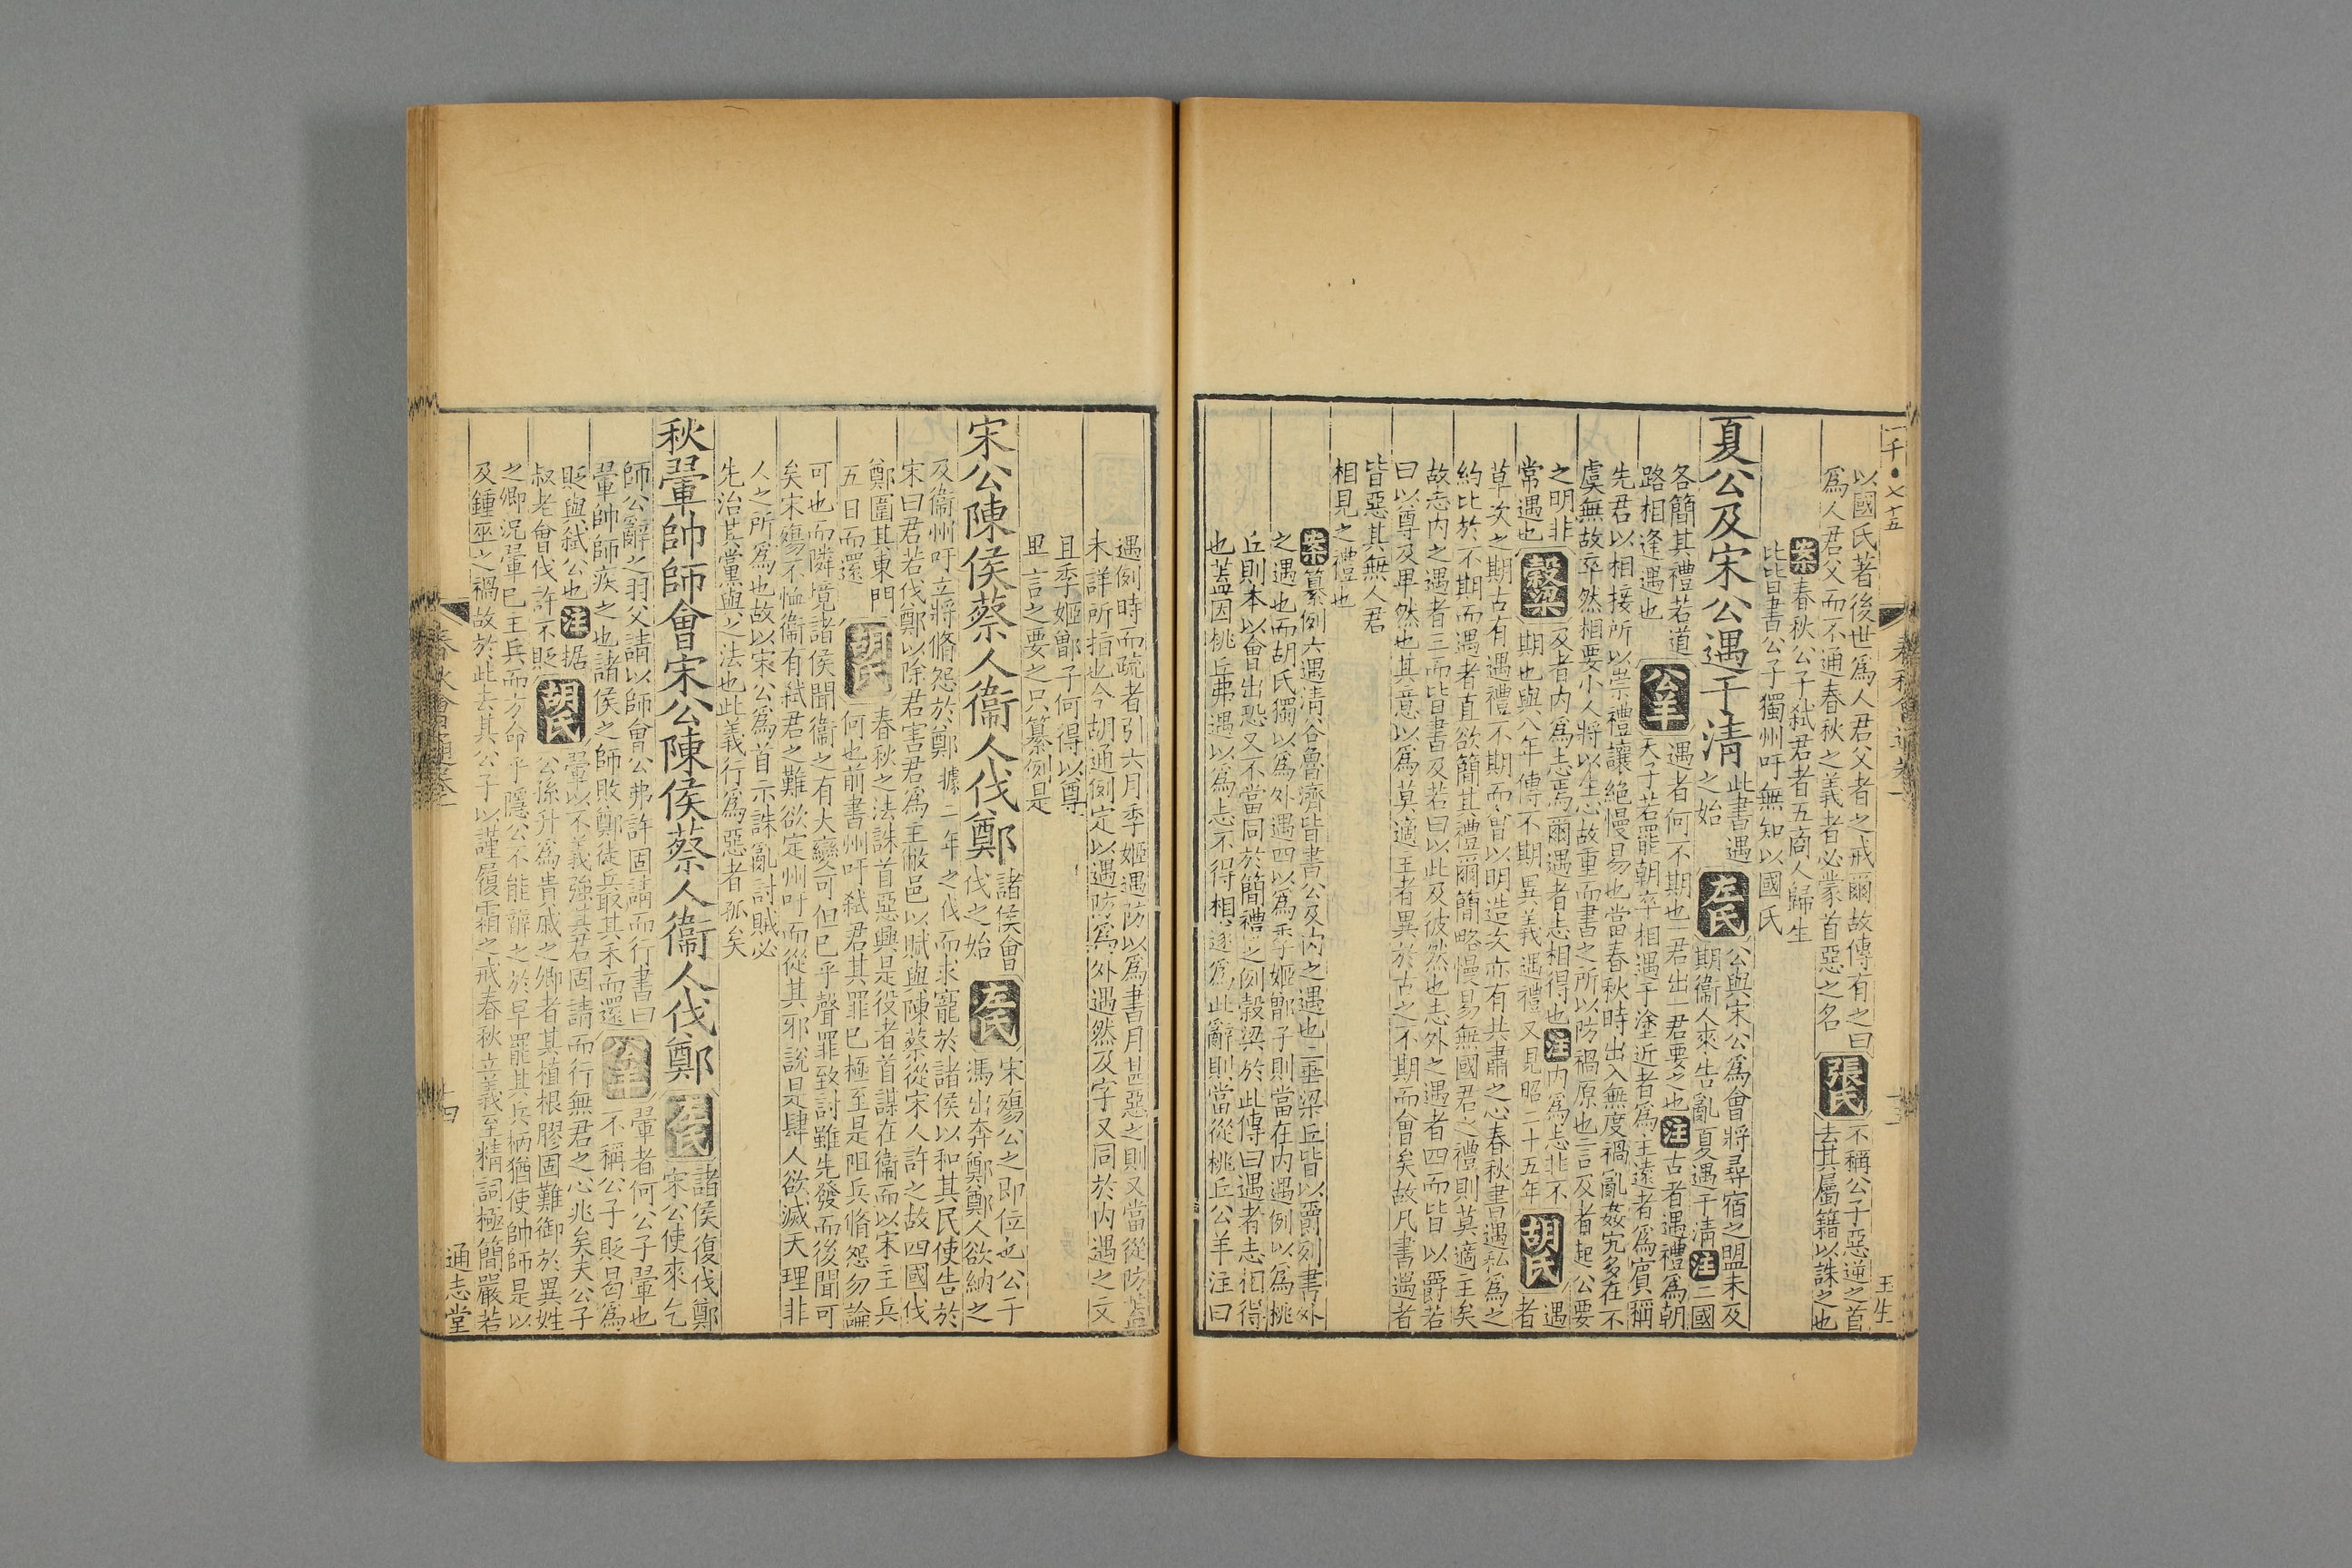 一千●七十五
春秋會通卷一
十三
王生
以國氏者後世爲人君父者之戒爾故傳有之曰
爲人君父而不通春秋之義者必蒙首惡之名張氏
不稱公子惡逆之首
去其屬籍以誅之也
案春秋公子弒君者五商人歸生
比皆書公子獨州吁無知以國氏
夏公及宋公遇于清
此書遇
之始
左氏
公與宋公爲會將尋宿之盟未及
期衞人來告亂夏遇于清注二國
各簡其禮若道
路相逢遇也
公羊
遇者何不期也一君出一君要之也注古者遇禮爲朝
天子若罷朝卒相遇于塗近者爲主遠者爲賓稱
先君以相接所以崇禮讓絕慢易也當春秋時出入無度禍亂姦宄多在不
虞無故卒然相要小人將以生心故重而書之所以防禍原也言及者起公要
之明非
常遇也
穀梁
及者內爲志焉爾遇者志相得也注內爲志非不
期也與八年傳不期異義遇禮又見昭二十五年
胡氏
遇
者
草次之期古有遇禮不期而會以明造次亦有共肅之心春秋書遇私爲之
約比於不期而遇者直欲簡其禮爾簡略慢易無國君之禮則莫適主矣
故志內之遇者三而皆書及若曰以此及彼然也志外之遇者四而皆以爵若
曰以尊及卑然也其意以爲莫適主者異於古之不期而會矣故凡書遇者
皆惡其無人君
相見之禮也
案纂例六遇清谷魯濟皆書公及內之遇也二垂梁丘皆以爵列書外
之遇也而胡氏獨以爲外遇四以爲季姬鄫子則當在內遇例以爲桃
丘則本以會出恐又不當同於簡禮之例穀梁於此傳曰遇者志相得
也蓋因桃丘弗遇以爲志不得相遂爲此辭則當從桃丘公羊注曰
遇例時而疏者引六月季姬遇防以爲書月甚惡之則又當從防蓋
未詳所指也今胡通例定以遇防爲外遇然及字又同於內遇之文
且季姬鄫子何得以尊
卑言之要之只纂例是
宋公陳侯蔡人衞人伐鄭
諸侯會
伐之始
左氏
宋殤公之即位也公子
馮出奔鄭鄭人欲納之
及衞州吁立將脩怨於鄭據二年之伐而求寵於諸侯以和其民使告於
宋曰君若伐鄭以除君害君爲主敝邑以賦與陳蔡從宋人許之故四國伐
鄭圍其東門
五日而還
胡氏
春秋之法誅首惡興是役者首謀在衞而以宋主兵
何也前書州吁弒君其罪已極至是阻兵脩怨勿論
可也而隣境諸侯聞衞之有大變可但已乎聲罪致討雖先發而後聞可
矣宋殤不恤衞有弒君之難欲定州吁而從其邪說是肆人欲滅天理非
人之所爲也故以宋公爲首示誅亂討賊必
先治其黨與之法也此義行爲惡者孤矣
秋翬帥師會宋公陳侯蔡人衞人伐鄭
左氏
諸侯復伐鄭
宋公使來乞
師公辭之羽父請以師會公弗許固請而行書曰
翬帥師疾之也諸侯之師敗鄭徒兵取其禾而還
公羊
翬者何公子翬也
不稱公子貶曷爲
貶與弒公也
注据
叔老會伐許不貶
胡氏
翬以不義強其君固請而行無君之心兆矣夫公子
公孫升爲貴戚之卿者其植根膠固難御於異姓
之卿況翬已主兵而方命乎隱公不能辨之於早罷其兵柄猶使帥師是以
及鍾巫之禍故於此去其公子以謹履霜之戒春秋立義至精詞極簡嚴若
十四
通志堂